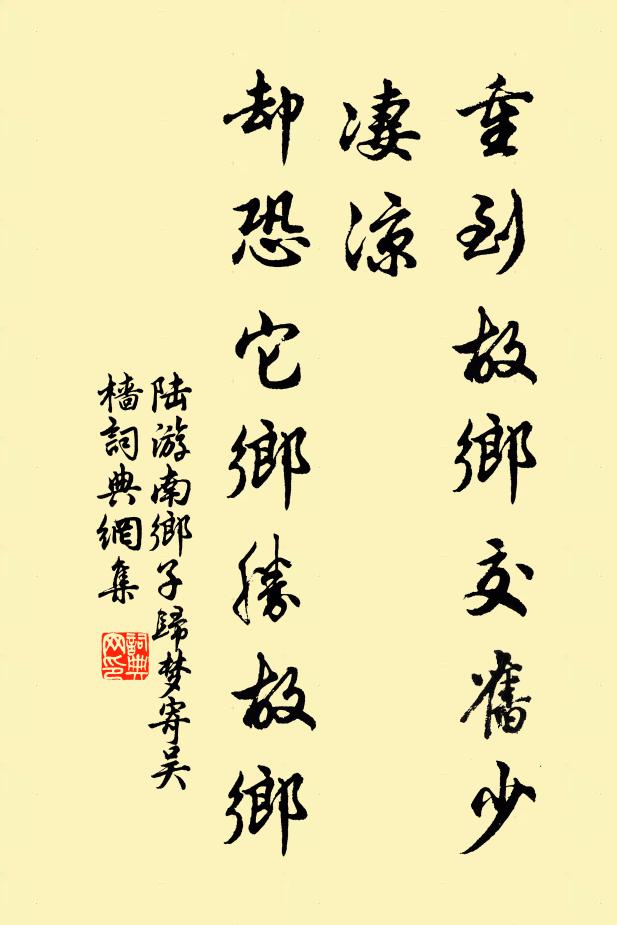 重到故鄉交舊少
凄涼
却恐它鄉勝故鄉
陆游南鄉子歸梦寄吴
檣詞典網集
詞典
网印